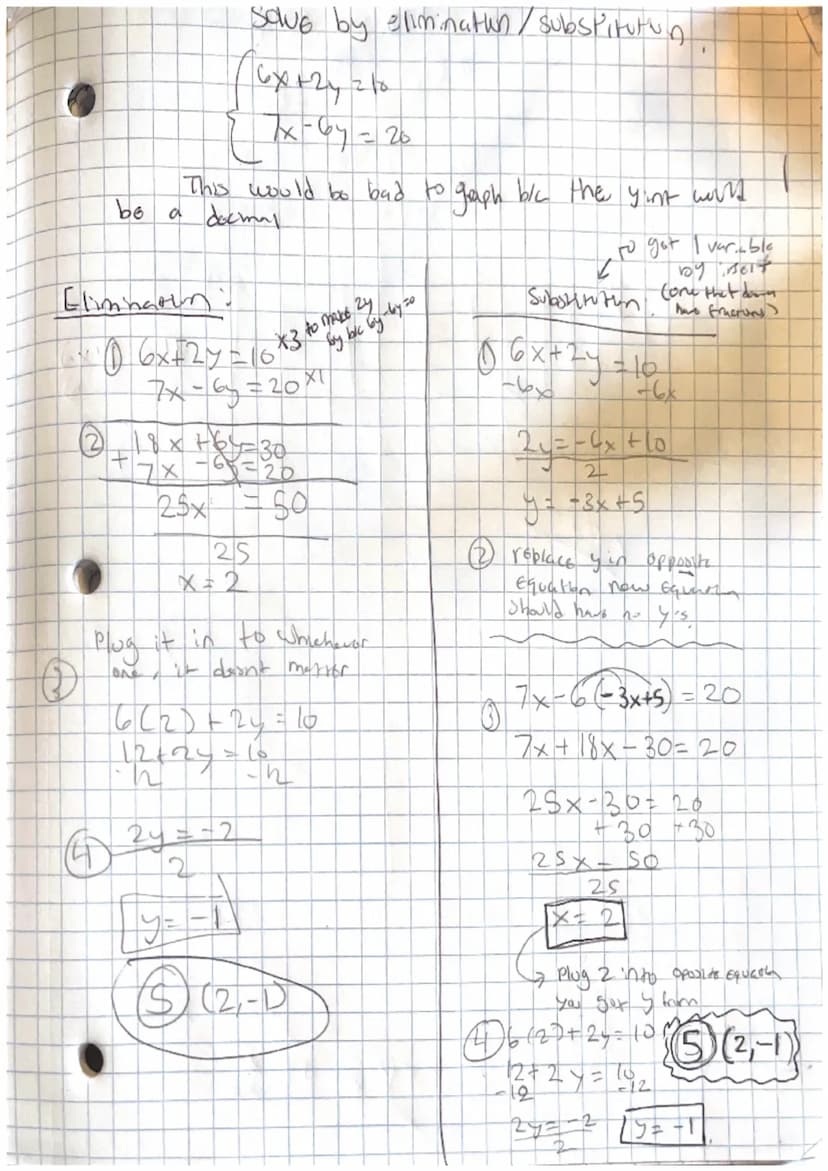 Solve by elimination/substitution.
6x+2y=10
7x-6y=20
This would be bad to graph b/c the yint would
be a decmal
Elimination:
① 6x+2y=10 x3 to make 2y
6y b/c 6y-6y=0
7x-6y=20 x1
② 18x+6y=30
+ 7x-6y=20
25x =50
25
x=2
③ Plug it in to whichever
one, it doesnt matter
6(2)+2y=10
12+2y=10
-12 -12
④ 2y=-2
2
y=-1
Ⓢ (2,-1)
to get 1 variable
by itself
(one that doesn
have fractions)
Substitution
① 6x+2y=10
-6x -6x
2y=-6x+10
2
y=-3x+5
② replace y in opposite
equation new equation
should have no y's.
③ 7x-6(-3x+5)=20
7x+18x-30=20
25x-30=20
+30 +30
25x=50
25
x=2
Plug 2 into opposite equation
you got y from
④ 6(2)+2y=10
12+2y=10
-12 -12
2y=-2
2
y=-1
Ⓢ (2,-1)